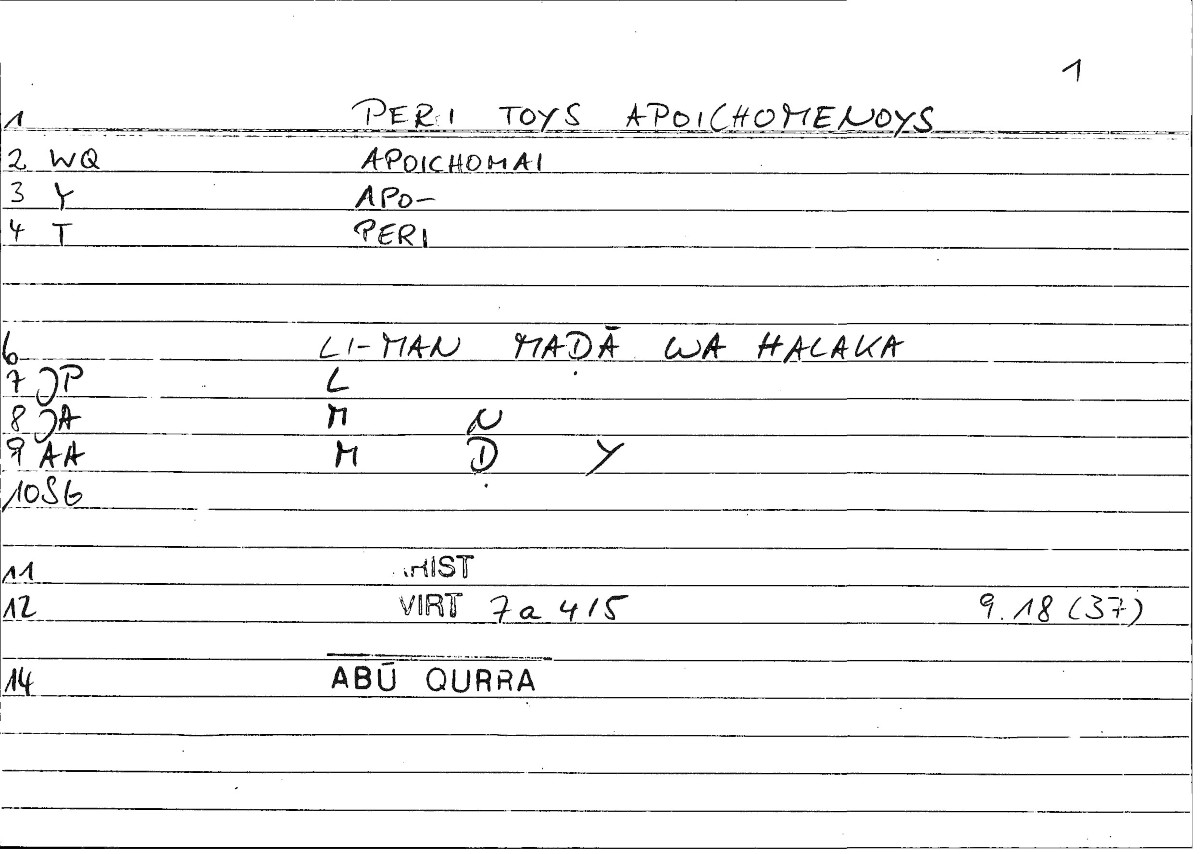 1
1 PERI TOYS APOICHOMENOYS
2 WQ APOICHOMAI
3 Y APO-
4 T PERI
6 LI-MAN MAḌĀ WA HALAKA
7 JP L
8 JA M N
9 AA M Ḍ Y
10 SG
11 HIST
12 VIRT 7a 4/5 9.18 (37)
14 ABŪ QURRA